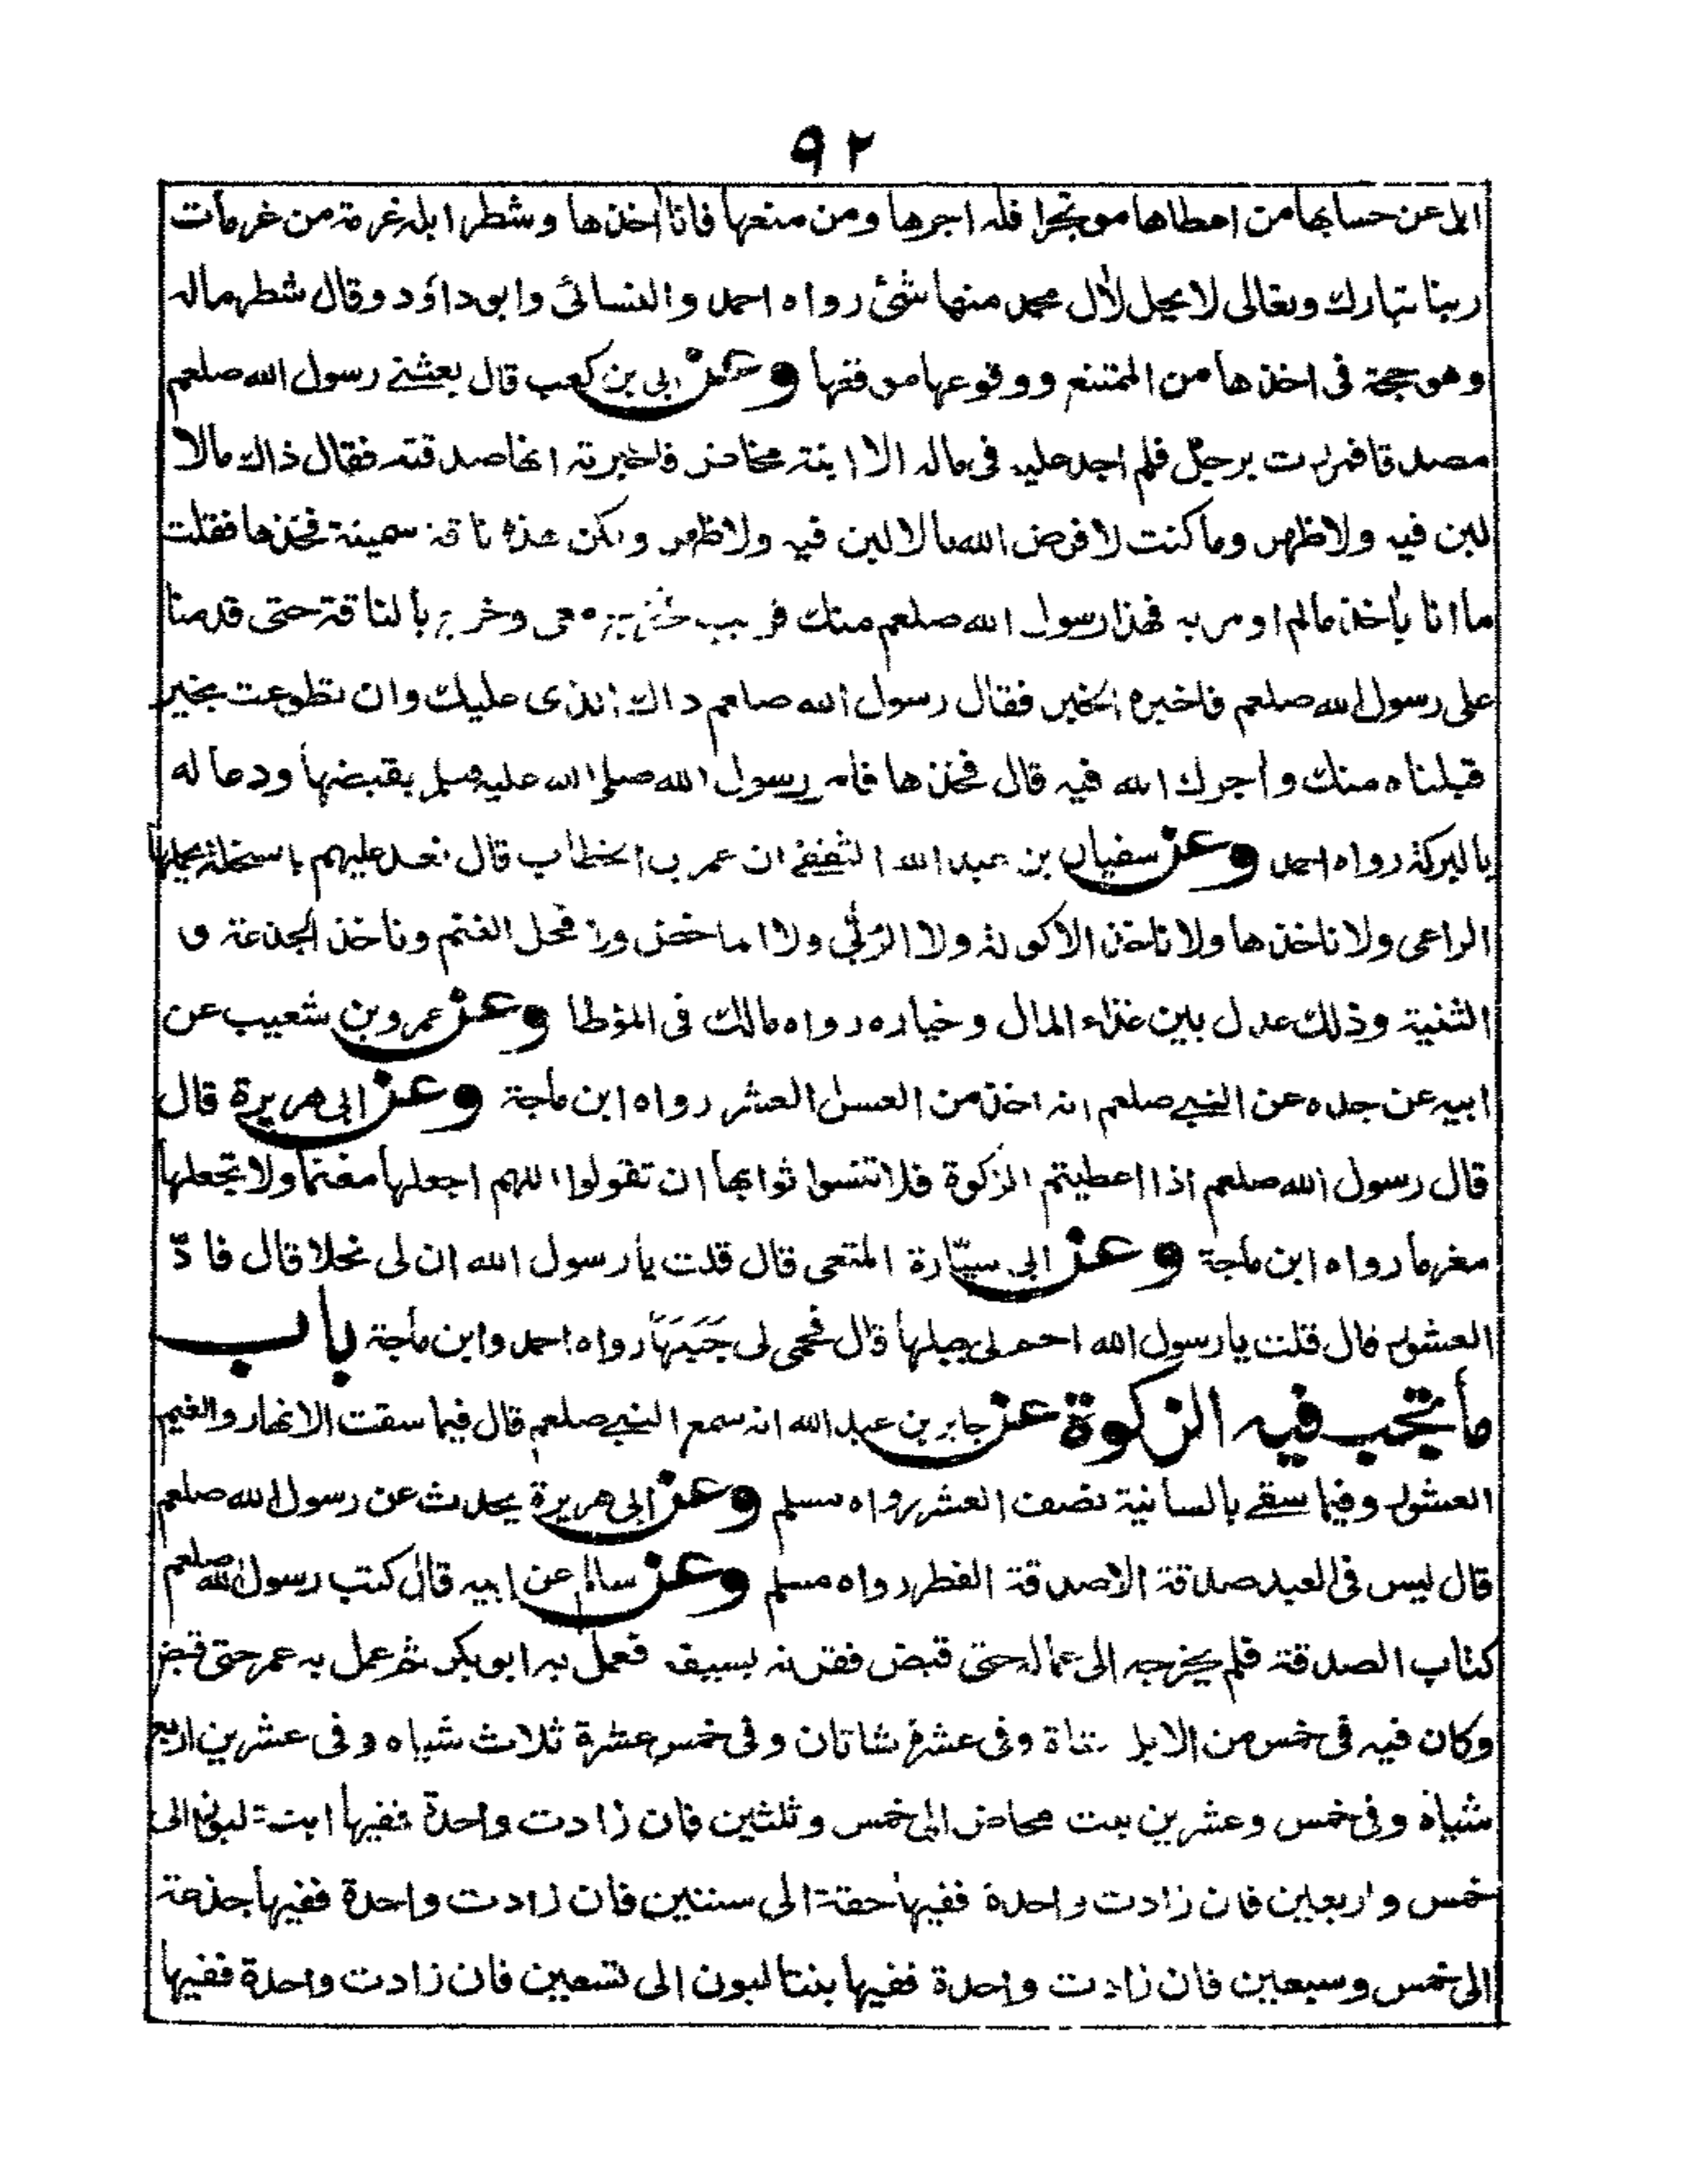 ٩٢
ابل عن حسابها من اعطاها موتجرا فله اجرها ومن منعها فانا اخذها وشطر ابله غرمة من غرمات
ربنا تبارك وتعالى لا يحل لآل محمد منها شئ رواه احمد والنسائى وابو داؤد وقال شطر ماله
وهو حجة فى اخذها من الممتنع ووقوعها موقعها وعن ابى بن كعب قال بعثنى رسول الله صلعم
مصدقا فمررت برجل فلم اجد عليه فى ماله الا ابنة مخاض فاخبرته انها صدقته فقال ذاك مالا
لبن فيه ولا ظهر وما كنت لا قرض الله مالا لبن فيه ولا ظهر ولكن هذه ناقة سمينة فخذها فقلت
ما انا بأخذ مالم اومر به فهذا رسول الله صلعم منك قريب فخرج معى وخرج بالناقة حتى قدمنا
على رسول الله صلعم فاخبره الخبر فقال رسول الله صلعم ذاك الذى عليك وان تطوعت بخير
قبلناه منك واجرك الله فيه قال فخذها فامر رسول الله صلى الله عليه وسلم بقبضها ودعا له
بالبركة رواه احمد وعن سفيان بن عبد الله الثقفى ان عمر بن الخطاب قال نعد عليهم بالسخلة يحملها
الراعى ولا ناخذها ولا ناخذ الاكولة ولا الربّى ولا الماخض ولا فحل الغنم وناخذ الجذعة و
الثنية وذلك عدل بين غذاء المال وخياره رواه مالك فى المؤطا وعن عمرو بن شعيب عن
ابيه عن جده عن النبى صلعم انه اخذ من العسل العشر رواه ابن ماجة وعن ابى هريرة قال
قال رسول الله صلعم اذا اعطيتم الزكوة فلا تنسوا ثوابها ان تقولوا اللهم اجعلها مغنما ولا تجعلها
مغرما رواه ابن ماجة وعن ابى سيّارة المتعى قال قلت يا رسول الله ان لى نحلا قال فادّ
العشور قال قلت يا رسول الله احم لى جبلها قال فحمى لى جَبَلَهَا رواه احمد وابن ماجة باب
ما تجب فيه الزكوة عن جابر بن عبد الله انه سمع النبى صلعم قال فيما سقت الانهار والغيم
العشور وفيما سقى بالسانية نصف العشر رواه مسلم وعن ابى هريرة يحدث عن رسول الله صلعم
قال ليس فى العبد صدقة الا صدقة الفطر رواه مسلم وعن سالم عن ابيه قال كتب رسول الله صلعم
كتاب الصدقة فلم يخرجه الى عماله حتى قبض فقرنه بسيفه فعمل به ابو بكر ثم عمل به عمر حتى قبض
وكان فيه فى خمس من الابل شاة وفى عشرة شاتان وفى خمس عشرة ثلاث شياه وفى عشرين اربع
شياه وفى خمس وعشرين بنت مخاض الى خمس وثلثين فان زادت واحدة ففيها ابنة لبون الى
خمس واربعين فان زادت واحدة ففيها حقة الى ستين فان زادت واحدة ففيها جذعة
الى خمس وسبعين فان زادت واحدة ففيها بنتا لبون الى تسعين فان زادت واحدة ففيها